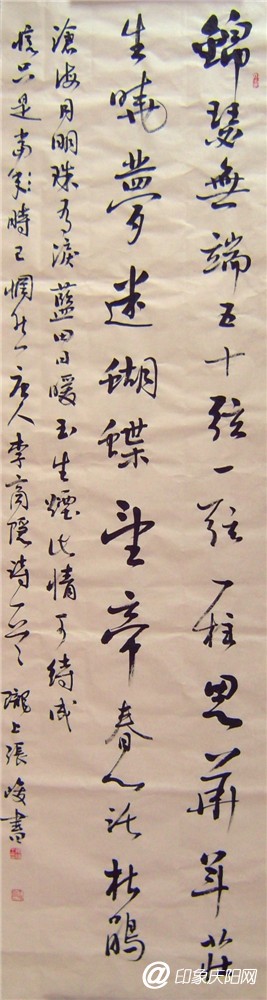 錦瑟無端五十弦一弦一柱思華年莊
生曉夢迷蝴蝶望帝春心託杜鵑
滄海月明珠有淚藍田日暖玉生煙此情可待成
憶只是當時已惘然唐人李商隱詩一首 隴上張峻書
@印象庆阳网